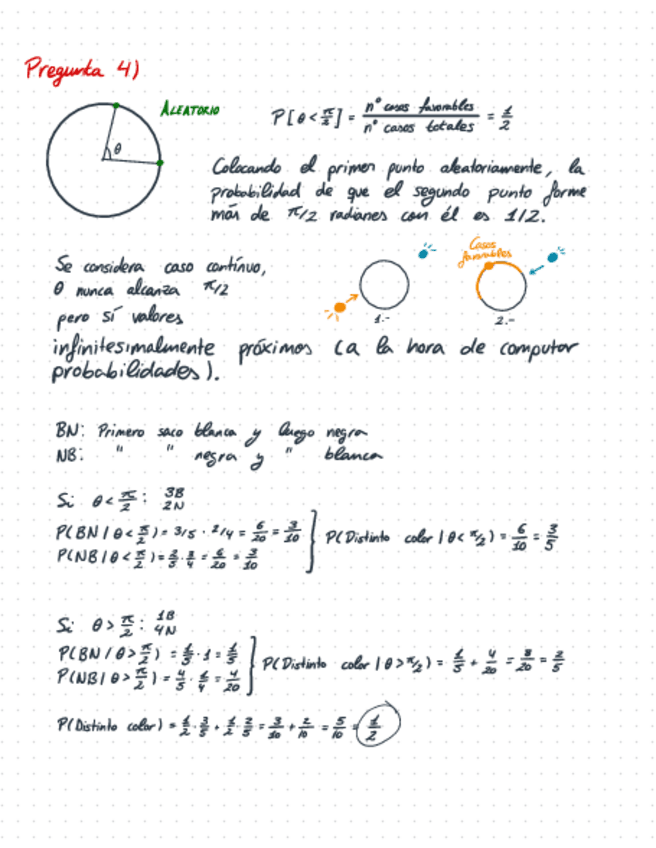 Pregunta 4)
ALEATORIO
θ
P[θ < π/2] = nº casos favorables / nº casos totales = 1/2
Colocando el primer punto aleatoriamente, la
probabilidad de que el segundo punto forme
más de π/2 radianes con él es 1/2.
Casos
favorables
1.-
2.-
Se considera caso contínuo,
θ nunca alcanza π/2
pero sí valores
infinitesimalmente próximos (a la hora de computar
probabilidades).
BN: Primero saco blanca y luego negra
NB: " " negra y " blanca
Si θ < π/2 : 3B
2N
P(BN / θ < π/2) = 3/5 · 2/4 = 6/20 = 3/10
P(NB / θ < π/2) = 2/5 · 3/4 = 6/20 = 3/10
P(Distinto color | θ < π/2) = 6/10 = 3/5
Si θ > π/2 : 1B
4N
P(BN / θ > π/2) = 1/5 · 1 = 1/5
P(NB / θ > π/2) = 4/5 · 1/4 = 4/20
P(Distinto color | θ > π/2) = 1/5 + 4/20 = 8/20 = 2/5
P(Distinto color) = 1/2 · 3/5 + 1/2 · 2/5 = 3/10 + 2/10 = 5/10 = 1/2